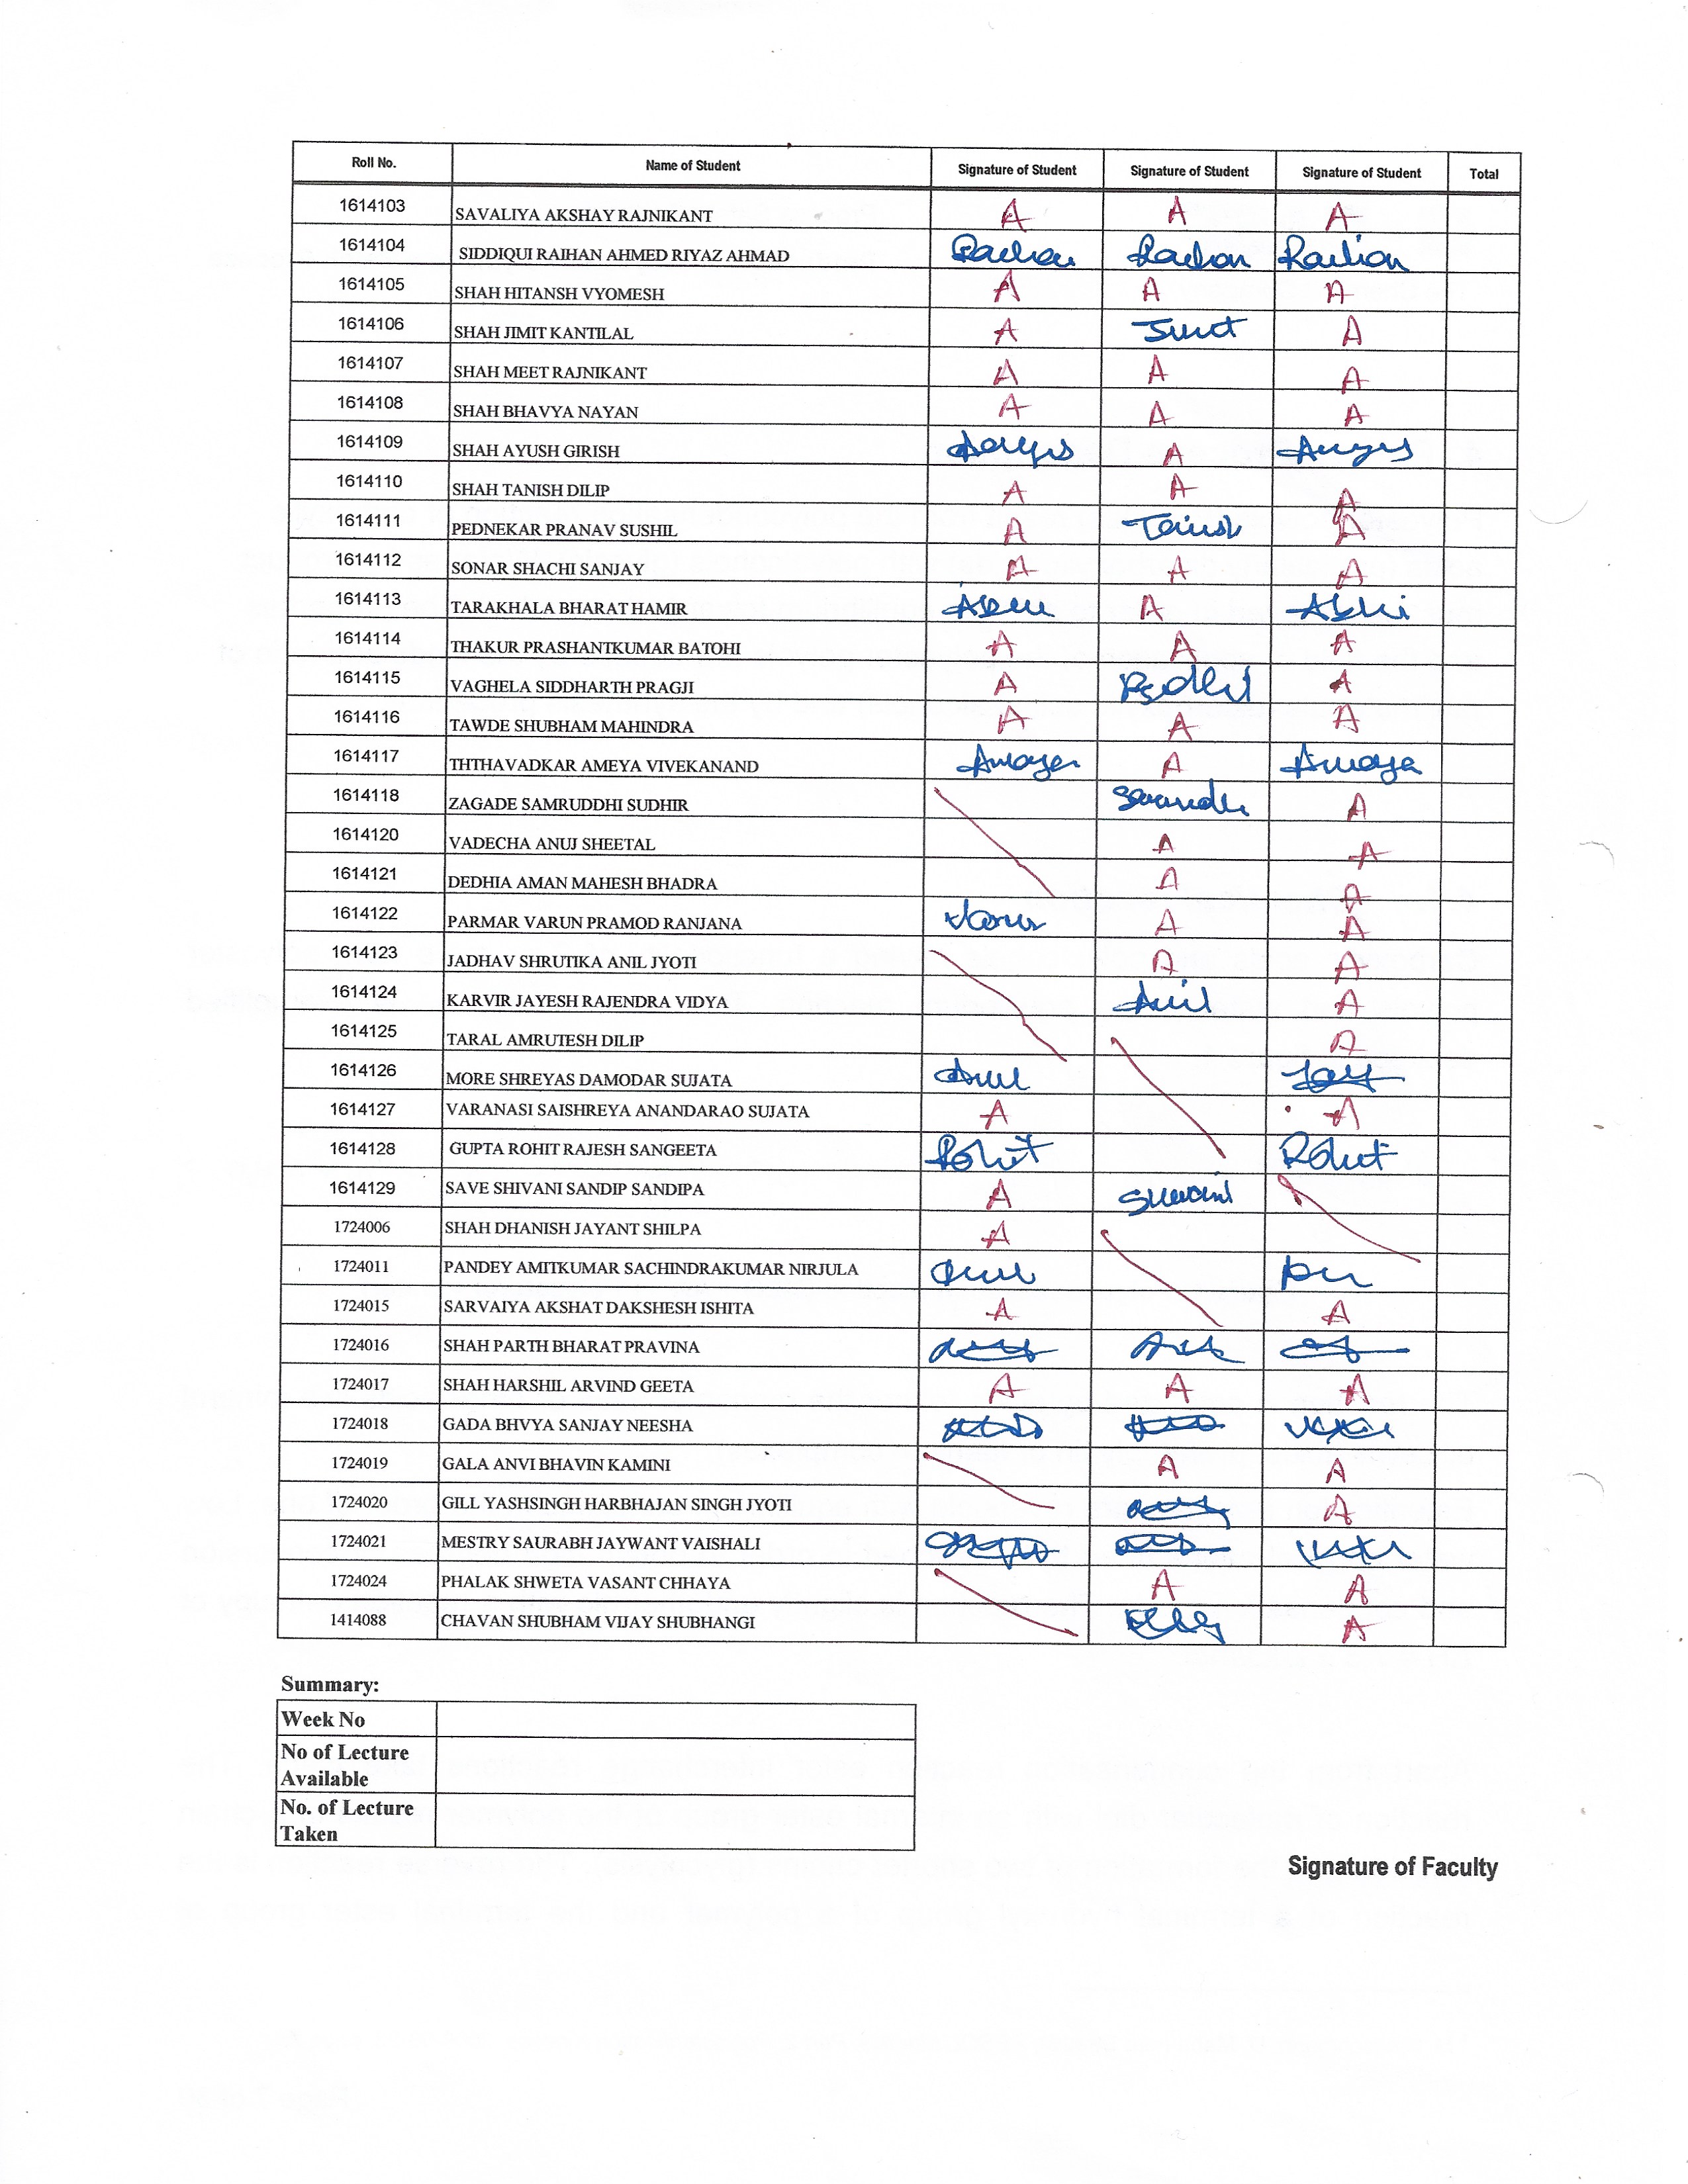 Roll No. Name of Student Signature of Student Signature of Student Signature of Student Total
1614103 SAVALIYA AKSHAY RAJNIKANT A A A
1614104 SIDDIQUI RAIHAN AHMED RIYAZ AHMAD Raihan Raihan Raihan
1614105 SHAH HITANSH VYOMESH A A A
1614106 SHAH JIMIT KANTILAL A A
1614107 SHAH MEET RAJNIKANT A A A
1614108 SHAH BHAVYA NAYAN A A A
1614109 SHAH AYUSH GIRISH A
1614110 SHAH TANISH DILIP A A A
1614111 PEDNEKAR PRANAV SUSHIL A A
1614112 SONAR SHACHI SANJAY A A A
1614113 TARAKHALA BHARAT HAMIR A
1614114 THAKUR PRASHANTKUMAR BATOHI A A A
1614115 VAGHELA SIDDHARTH PRAGJI A A
1614116 TAWDE SHUBHAM MAHINDRA A A A
1614117 THTHAVADKAR AMEYA VIVEKANAND A
1614118 ZAGADE SAMRUDDHI SUDHIR A
1614120 VADECHA ANUJ SHEETAL A A
1614121 DEDHIA AMAN MAHESH BHADRA A A
1614122 PARMAR VARUN PRAMOD RANJANA A A
1614123 JADHAV SHRUTIKA ANIL JYOTI A A
1614124 KARVIR JAYESH RAJENDRA VIDYA A
1614125 TARAL AMRUTESH DILIP A
1614126 MORE SHREYAS DAMODAR SUJATA
1614127 VARANASI SAISHREYA ANANDARAO SUJATA A A
1614128 GUPTA ROHIT RAJESH SANGEETA Rohit Rohit
1614129 SAVE SHIVANI SANDIP SANDIPA A
1724006 SHAH DHANISH JAYANT SHILPA A
1724011 PANDEY AMITKUMAR SACHINDRAKUMAR NIRJULA
1724015 SARVAIYA AKSHAT DAKSHESH ISHITA A A
1724016 SHAH PARTH BHARAT PRAVINA
1724017 SHAH HARSHIL ARVIND GEETA A A A
1724018 GADA BHVYA SANJAY NEESHA
1724019 GALA ANVI BHAVIN KAMINI A A
1724020 GILL YASHSINGH HARBHAJAN SINGH JYOTI A
1724021 MESTRY SAURABH JAYWANT VAISHALI
1724024 PHALAK SHWETA VASANT CHHAYA A A
1414088 CHAVAN SHUBHAM VIJAY SHUBHANGI A
Summary:
Week No
No of Lecture
Available
No. of Lecture
Taken
Signature of Faculty